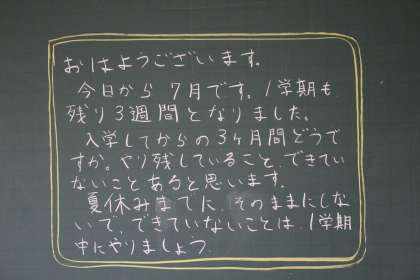 おはようございます。
今日から7月です。1学期も
残り3週間となりました。
入学してからの3ヶ月間どうで
すか。やり残していること、できてい
ないことあると思います。
夏休みまでに、そのままにしな
いで、できていないことは、1学期
中にやりましょう